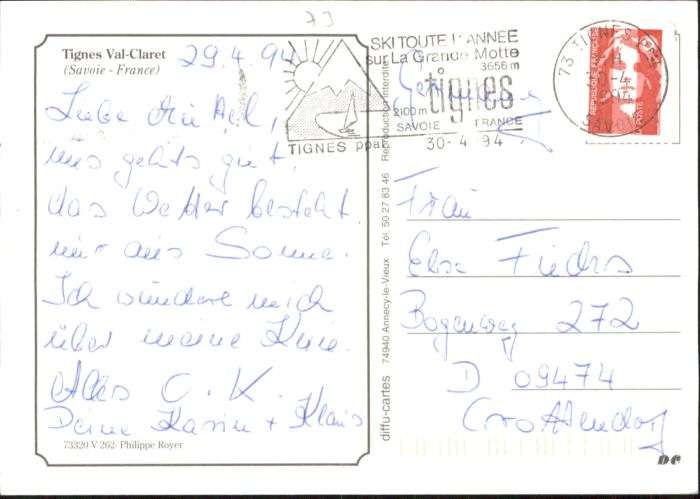 73
Tignes Val-Claret
(Savoie - France)
29.4.94
Liebe
uns gehts gut,
das Wetter besteht
nur aus Sonne.
Ich wundere mich
über meine Knie.
Alles O.K.
Deine Karin + Klaus
73320 V 262- Philippe Royer
SKI TOUTE L'ANNEE
sur La Grande Motte
3656 m
tignes
2100 m
SAVOIE FRANCE
TIGNES ppal
30- 4 94
73 TIGNES
SAVOIE
REPUBLIQUE FRANÇAISE
POSTE
diffu-cartes 74940 Annecy-le-Vieux Tél. 50 27 83 46 Reproduction interdite
Frau
Elsa Fuchs
Bogenweg 272
D 09474
Crottendorf
DC